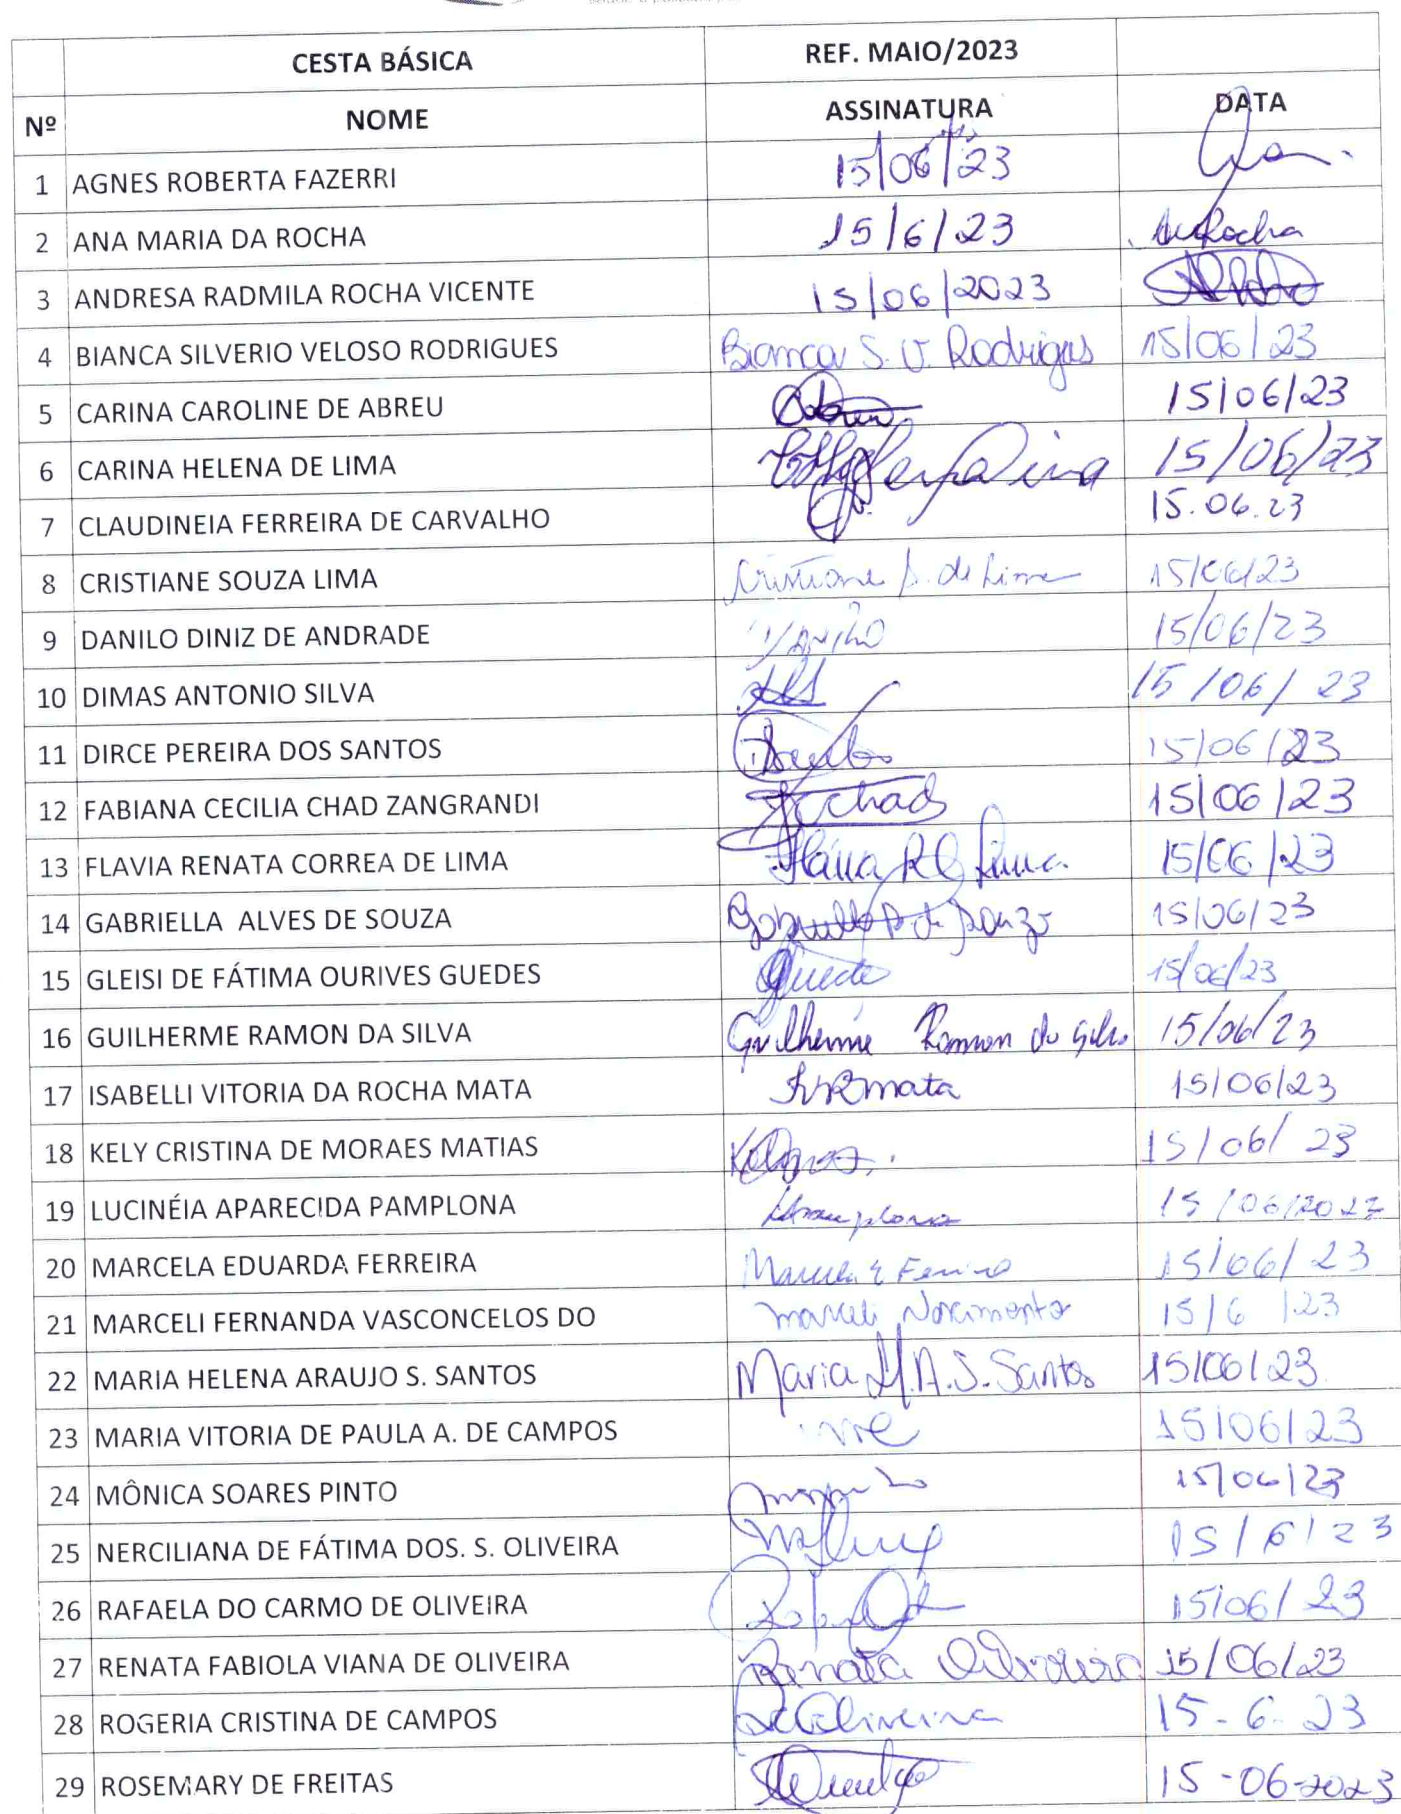 CESTA BÁSICA REF. MAIO/2023
Nº NOME ASSINATURA DATA
1 AGNES ROBERTA FAZERRI 15/06/23
2 ANA MARIA DA ROCHA 15/6/23 Rocha
3 ANDRESA RADMILA ROCHA VICENTE 15/06/2023
4 BIANCA SILVERIO VELOSO RODRIGUES Bianca S. V. Rodrigues 15/06/23
5 CARINA CAROLINE DE ABREU 15/06/23
6 CARINA HELENA DE LIMA 15/06/23
7 CLAUDINEIA FERREIRA DE CARVALHO 15.06.23
8 CRISTIANE SOUZA LIMA Cristiane S. de Lima 15/06/23
9 DANILO DINIZ DE ANDRADE Danilo 15/06/23
10 DIMAS ANTONIO SILVA 15/06/23
11 DIRCE PEREIRA DOS SANTOS 15/06/23
12 FABIANA CECILIA CHAD ZANGRANDI Fchad 15/06/23
13 FLAVIA RENATA CORREA DE LIMA Flávia R C Lima 15/06/23
14 GABRIELLA ALVES DE SOUZA Gabriella A de Souza 15/06/23
15 GLEISI DE FÁTIMA OURIVES GUEDES 15/06/23
16 GUILHERME RAMON DA SILVA Guilherme Ramon da Silva 15/06/23
17 ISABELLI VITORIA DA ROCHA MATA IVRmata 15/06/23
18 KELY CRISTINA DE MORAES MATIAS 15/06/23
19 LUCINÉIA APARECIDA PAMPLONA LApamplona 15/06/2023
20 MARCELA EDUARDA FERREIRA Marcela E Ferreira 15/06/23
21 MARCELI FERNANDA VASCONCELOS DO marceli Nascimento 15/6/23
22 MARIA HELENA ARAUJO S. SANTOS Maria H.A.S. Santos 15/06/23
23 MARIA VITORIA DE PAULA A. DE CAMPOS 15/06/23
24 MÔNICA SOARES PINTO 15/06/23
25 NERCILIANA DE FÁTIMA DOS. S. OLIVEIRA 15/6/23
26 RAFAELA DO CARMO DE OLIVEIRA 15/06/23
27 RENATA FABIOLA VIANA DE OLIVEIRA Renata Oliveira 15/06/23
28 ROGERIA CRISTINA DE CAMPOS 15-6-23
29 ROSEMARY DE FREITAS 15-06-2023